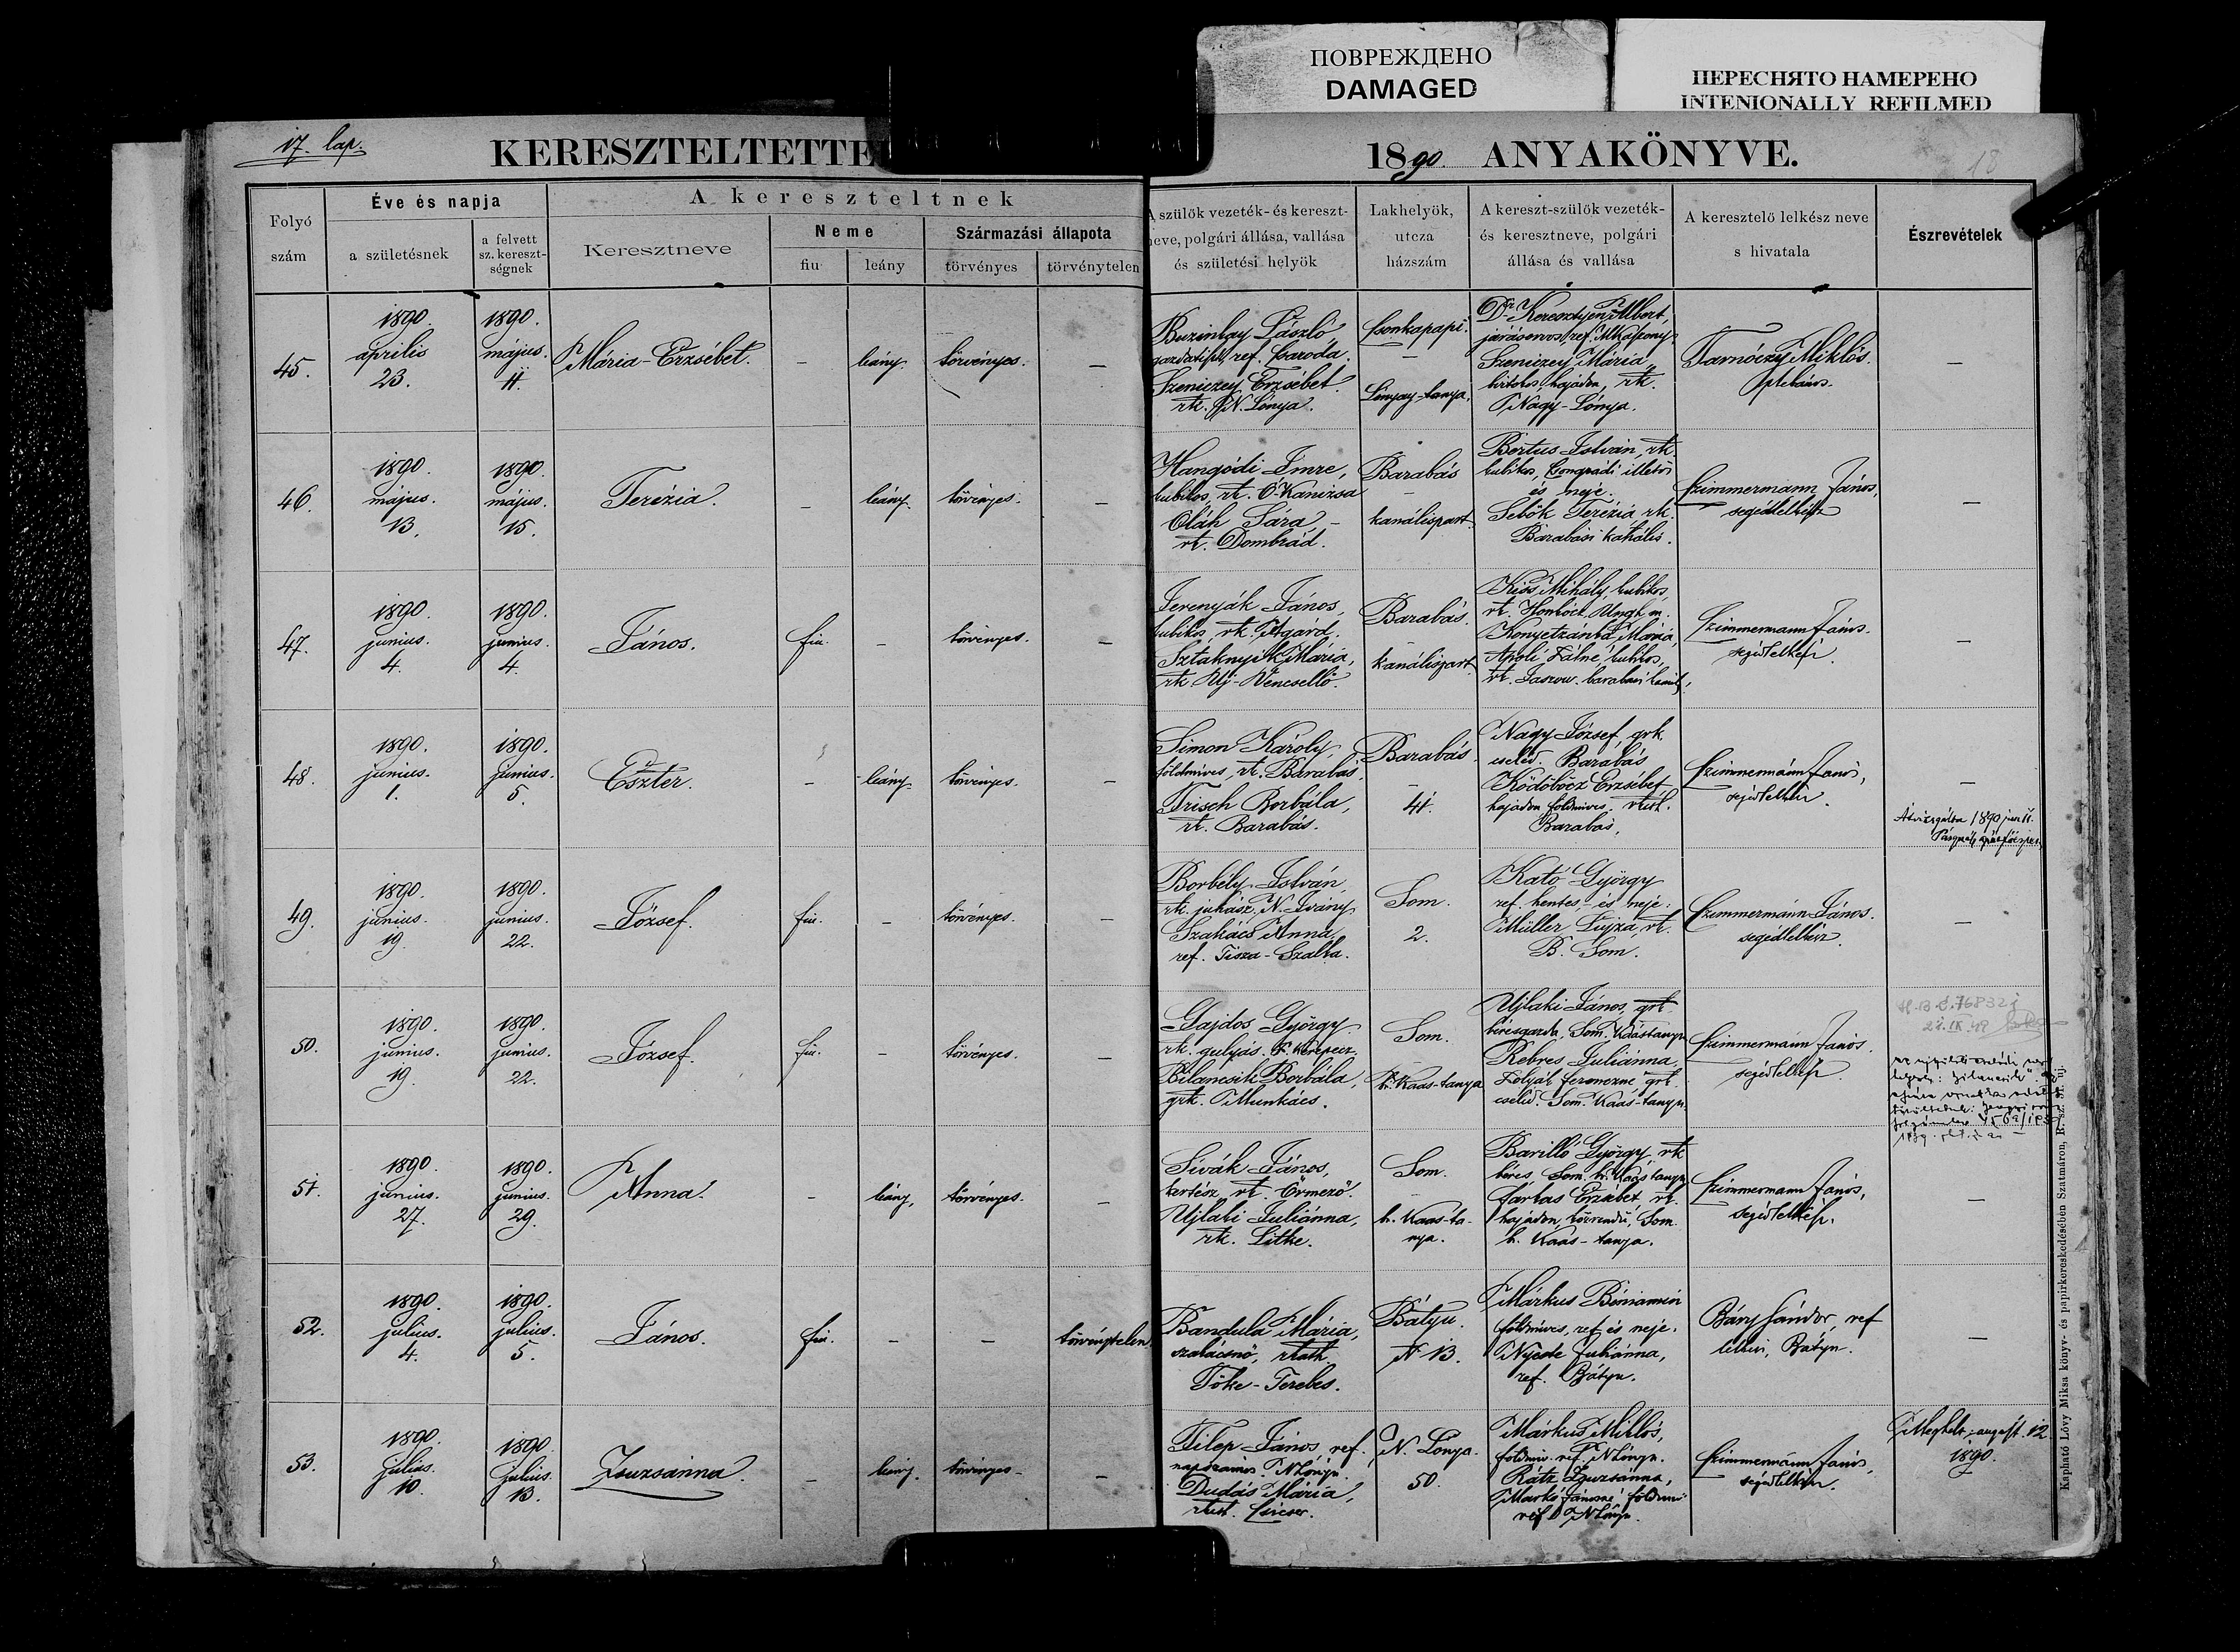 ПОВРЕЖДЕНО
DAMAGED
ПЕРЕСНЯТО НАМЕРЕНО
INTENIONALLY REFILMED
17. lap.
KERESZTELTETTE
1890. ANYAKÖNYVE.
18
Folyó szám
Éve és napja
a születésnek
a felvett sz. kereszt-ségnek
A kereszteltnek
Keresztneve
Neme
fiu
leány
Származási állapota
törvényes
törvénytelen
A szülök vezeték- és kereszt-
neve, polgári állása, vallása
és születési helyök
Lakhelyök,
utcza
házszám
A kereszt-szülök vezeték-
és keresztneve, polgári
állása és vallása
A keresztelő lelkész neve
s hivatala
Észrevételek
45.
1890.
április
23.
1890.
május.
11.
Mária-Erzsébet.
–
leány.
törvényes.
–
Buzinkay László
ref. Csaroda.
Szeniczey Erzsébet
rk. N. Lónya.
Csonkapapi.
–
Lónyay-tanya.
Dr. Keresztyén Albert,
járásorvos, ref. Mkaszony
Szeniczey Mária,
birtokos, hajadon, rk.
Nagy-Lónya.
Tarnóczy Miklós.
plebános.
–
46.
1890.
május.
13.
1890.
május.
15.
Terézia.
–
leány.
törvényes.
–
Hangódi Imre,
kubikos, rk. Ó-Kanizsa
Oláh Sára, –
rk. Dombrád.
Barabás
–
kanálispart.
Bertus István, rk.
kubikos, Csongrádi illetős
és neje.
Sebők Terézia rk.
Barabási kanális.
Czimmermann János,
segédlelkész
–
47.
1890.
junius.
4.
1890.
junius.
4.
János.
fiu.
–
törvényes.
–
Jerenyák János,
kubikos, rk. Agárd.
Sztahnyik Mária,
rk Uj-Vencsellő.
Barabás.
–
kanálispart.
Kiss Mihály, kubikos,
Mária,
Czimmermann János.
segédlelkész.
–
48.
1890.
junius.
1.
1890.
junius.
5.
Eszter.
–
leány.
törvényes.
–
Simon Károly,
földmives, rk. Barabás,
Trisch Borbála,
rk. Barabás.
Barabás.
–
41.
Nagy József, grk.
cseléd. Barabás
Ködöböcz Erzsébet
hajadon földmives,
Barabás.
Czimmermann János,
segédlelkész.
–
1890
49.
1890.
junius.
19.
1890.
junius.
22.
József.
fiu.
–
törvényes.
–
Borbély István,
rk. juhász. N. Iványi
Szakács Anna,
ref. Tisza-Szalka.
Som.
2.
Kató György
ref. hentes, – és neje:
Müller Lujza, rk.
B. Som.
Czimmermann János.
segédlelkész.
–
50.
1890.
junius.
19.
1890.
junius.
22.
József.
fiu.
–
törvényes.
–
Gajdos György
rk. gulyás. F. Kerepecz
Bilancsik Borbála,
grk. Munkács.
Som.
–
b. Kaas-tanya
Ujlaki János, grk.
béresgazda, Som. Kaástanya
Rebres Juliánna,
cseléd. Som. Kaás-tanya.
Czimmermann János.
segédlelkész.
51.
1890.
junius.
27.
1890.
junius.
29.
Anna.
–
leány.
törvényes.
–
Sivák János,
kertész, rk. Örmező.
Ujlaki Juliánna,
rk. Litke.
Som.
–
b. Kaas-ta-
nya.
Barilló György, rk
béres, Som. b. Kaástanya
Farkas Erzsébet, rk.
hajadon, Som.
b. Kaás-tanya.
Czimmermann János,
segédlelkész.
–
52.
1890.
julius.
4.
1890.
julius.
5.
János.
fiu.
–
–
törvénytelen.
Bandula Mária,
szakácsnő, rkath.
Tőke-Terebes.
Bátyu.
N 13.
Márkus Béniamin
földmives, ref. és neje.
Nyeste Juliánna,
ref. Bátyu.
Bány Sándor, ref
lelkész, Bátyu.
–
53.
1890.
julius.
10.
1890.
julius.
13.
Zsuzsánna.
–
leány.
törvényes.
–
Filep János, ref.
napszámos. N Lónya.
Dudás Mária,
N. Lónya.
50.
Márkus Miklós,
földmiv. ref. N Lónya.
Rátz Zsuzsánna,
Markó Jánosné
ref N Lónya.
Czimmermann János,
segédlelkész.
Meghalt, august. 12.
1890.
Kapható Lövy Miksa könyv- és papirkereskedésében Szatmáron, R. sz. 31. uj.